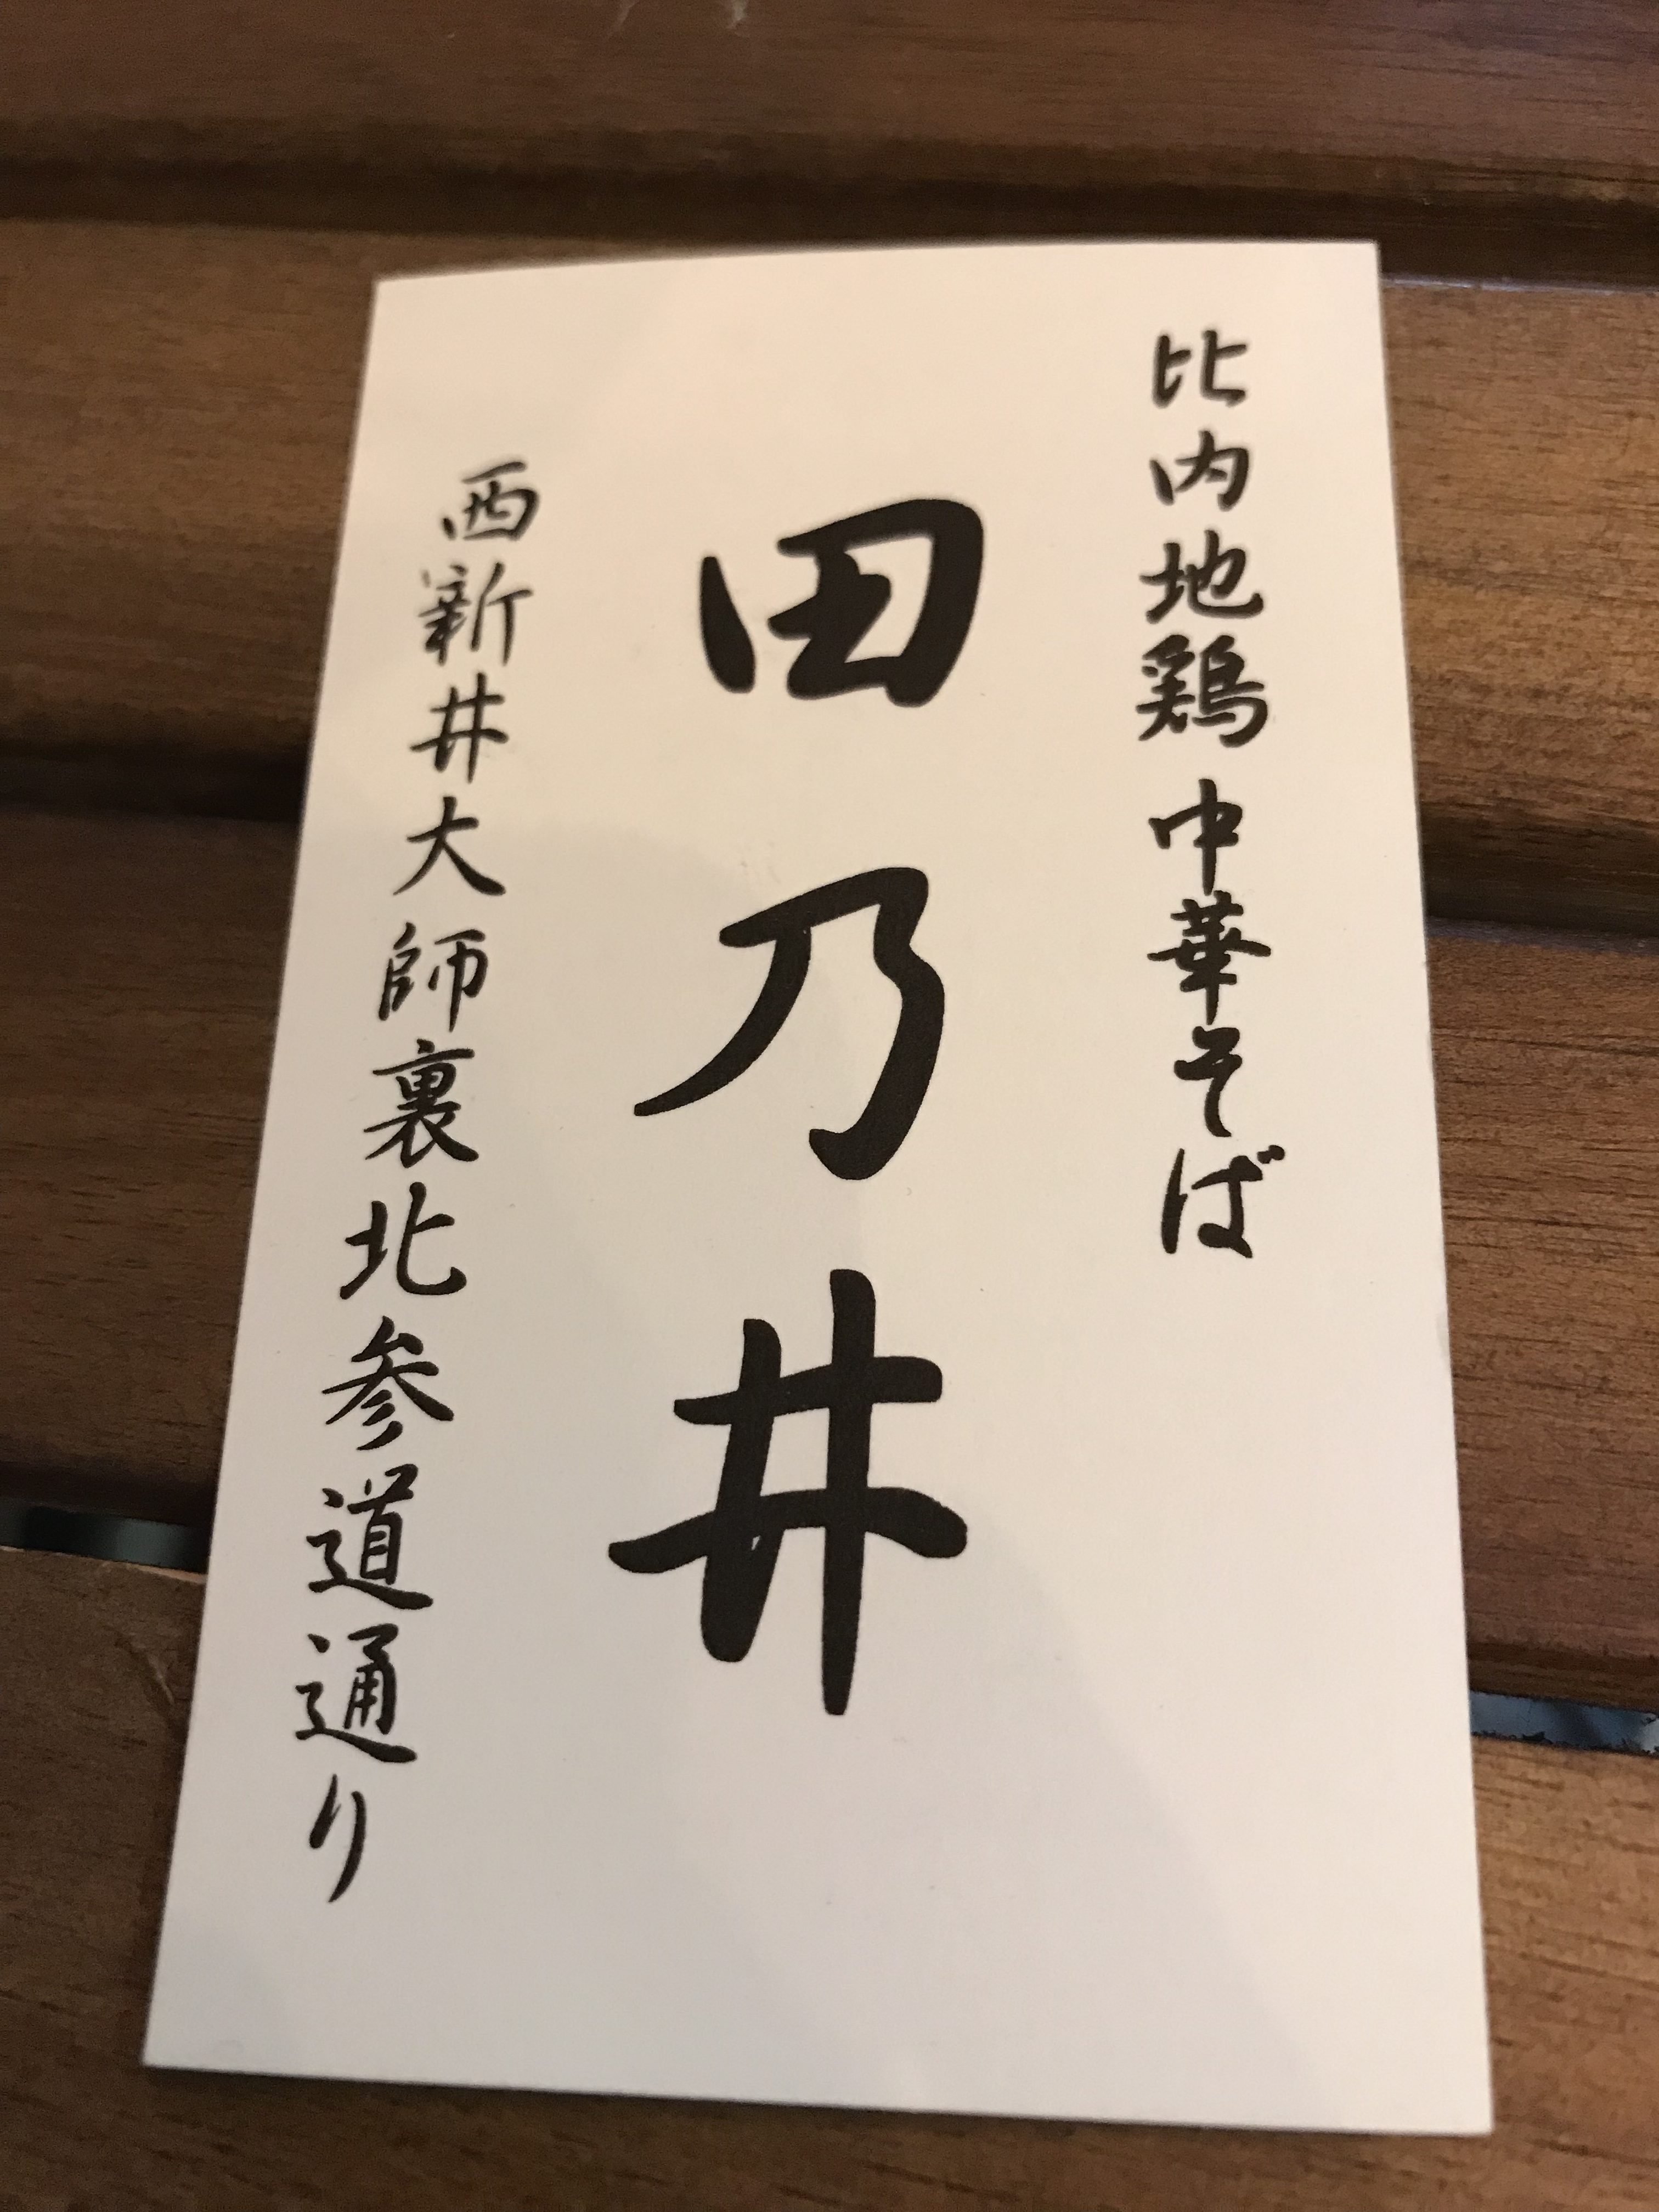 比内地鶏 中華そば
田乃井
西新井大師裏北参道通り